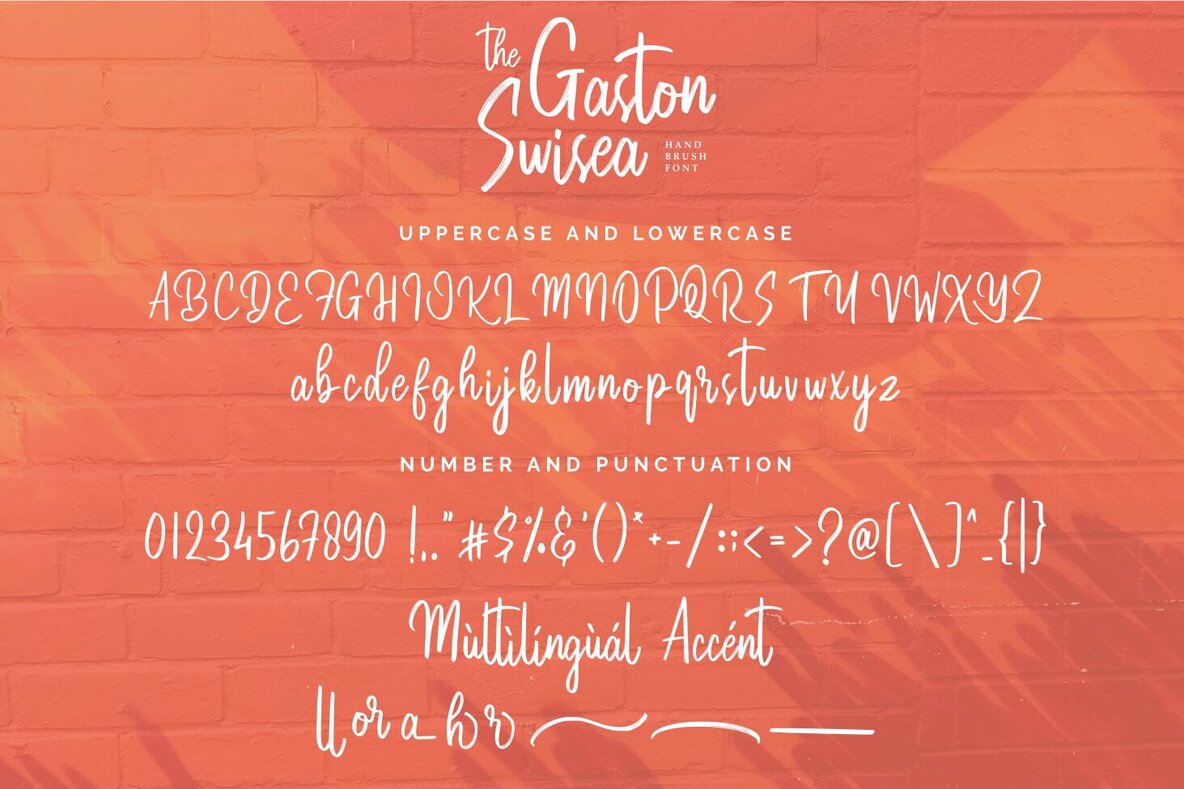 the Gaston
Swisea
HAND
BRUSH
FONT
UPPERCASE AND LOWERCASE
ABCDEFGHIJKLMNOPQRSTUVWXYZ
abcdefghijklmnopqrstuvwxyz
NUMBER AND PUNCTUATION
01234567890 !.,"#$%&'()*+-/:;<=>?@[\]^_{|}
Mùltìlíngùál Accént
ll or a h r